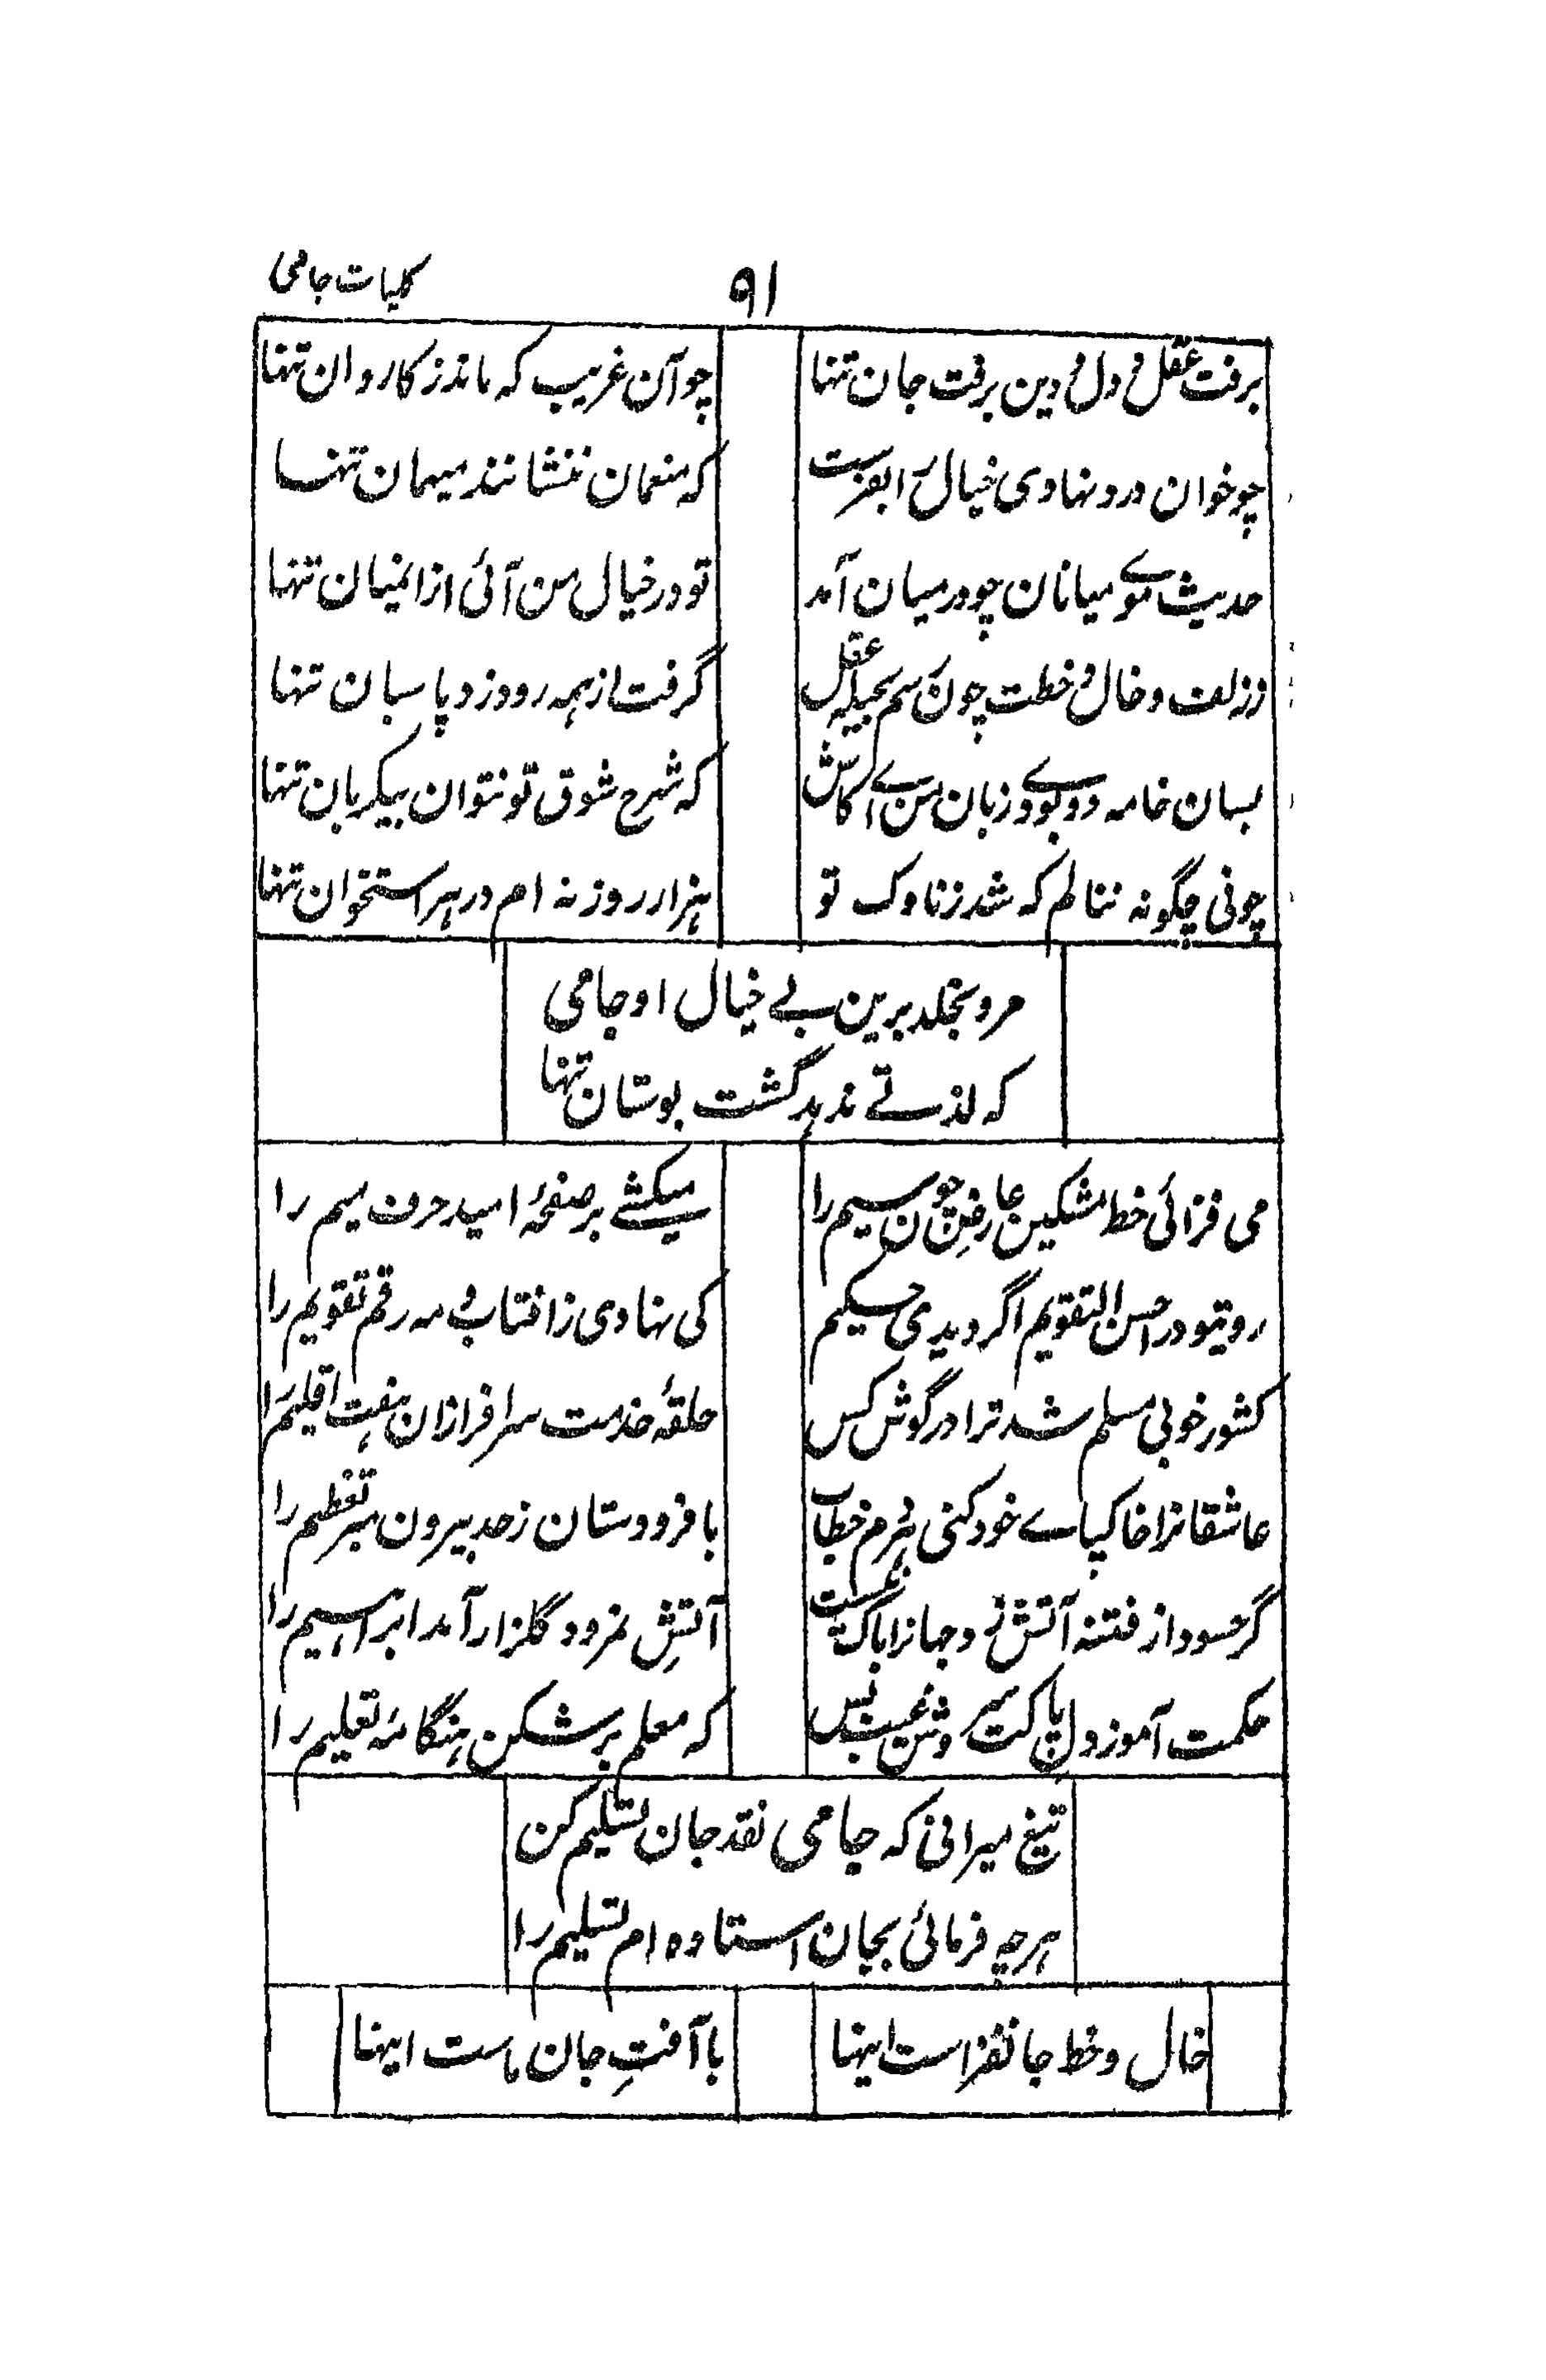 کلیات جامی
۹۱
برفت عقل و دل و دین برفت جان تنها
چو آن غریب که ماند ز کاروان تنها
چو خوان درد نهادی خیال را بفرست
که منعمان ننشانند میهمان تنها
حدیث موے میانان چو در میان آمد
تو در خیال من آئی ازانمیان تنها
ز زلف و خال و خطت چون رهم بحیلهٔ عقل
گرفت از همه رو دزد و پاسبان تنها
بسان خامه دو بودے زبان من اے کاش
که شرح شوق تو نتوان بیک زبان تنها
چو نی چگونه ننالم که شد ز ناوک تو
هزار روزنه ام در هر استخوان تنها
مرو بخلد برین بے خیال او جامی
که لذتے ندهد گشت بوستان تنها
می فزائی خط مشکین عارض چون سیم را
میکشے بر صفحهٔ امید حرف بیم را
رویتو در احسن التقویم اگر دیدی حکیم
کی نهادی ز افتاب و مه رقم تقویم را
کشور خوبی مسلم شد ترا در گوش کش
حلقهٔ خدمت سرافرازان هفت اقلیم را
عاشقانرا خاکپاے خود کنی هر دم خطاب
با فرودستان ز حد بیرون مبر تعظیم را
گر حسود از فتنه آتش زد جهانرا باک نیست
آتشِ نمرود گلزار آمد ابراهیم را
حکمت آموز دل پاکت سروش غیب بس
که معلم بر شکن هنگامهٔ تعلیم را
تیغ میرانی که جامی نقد جان تسلیم کن
هرچه فرمائی بجان استاده ام تسلیم را
خال و خط جانفزاست اینها
یا آفتِ جان ماست اینها